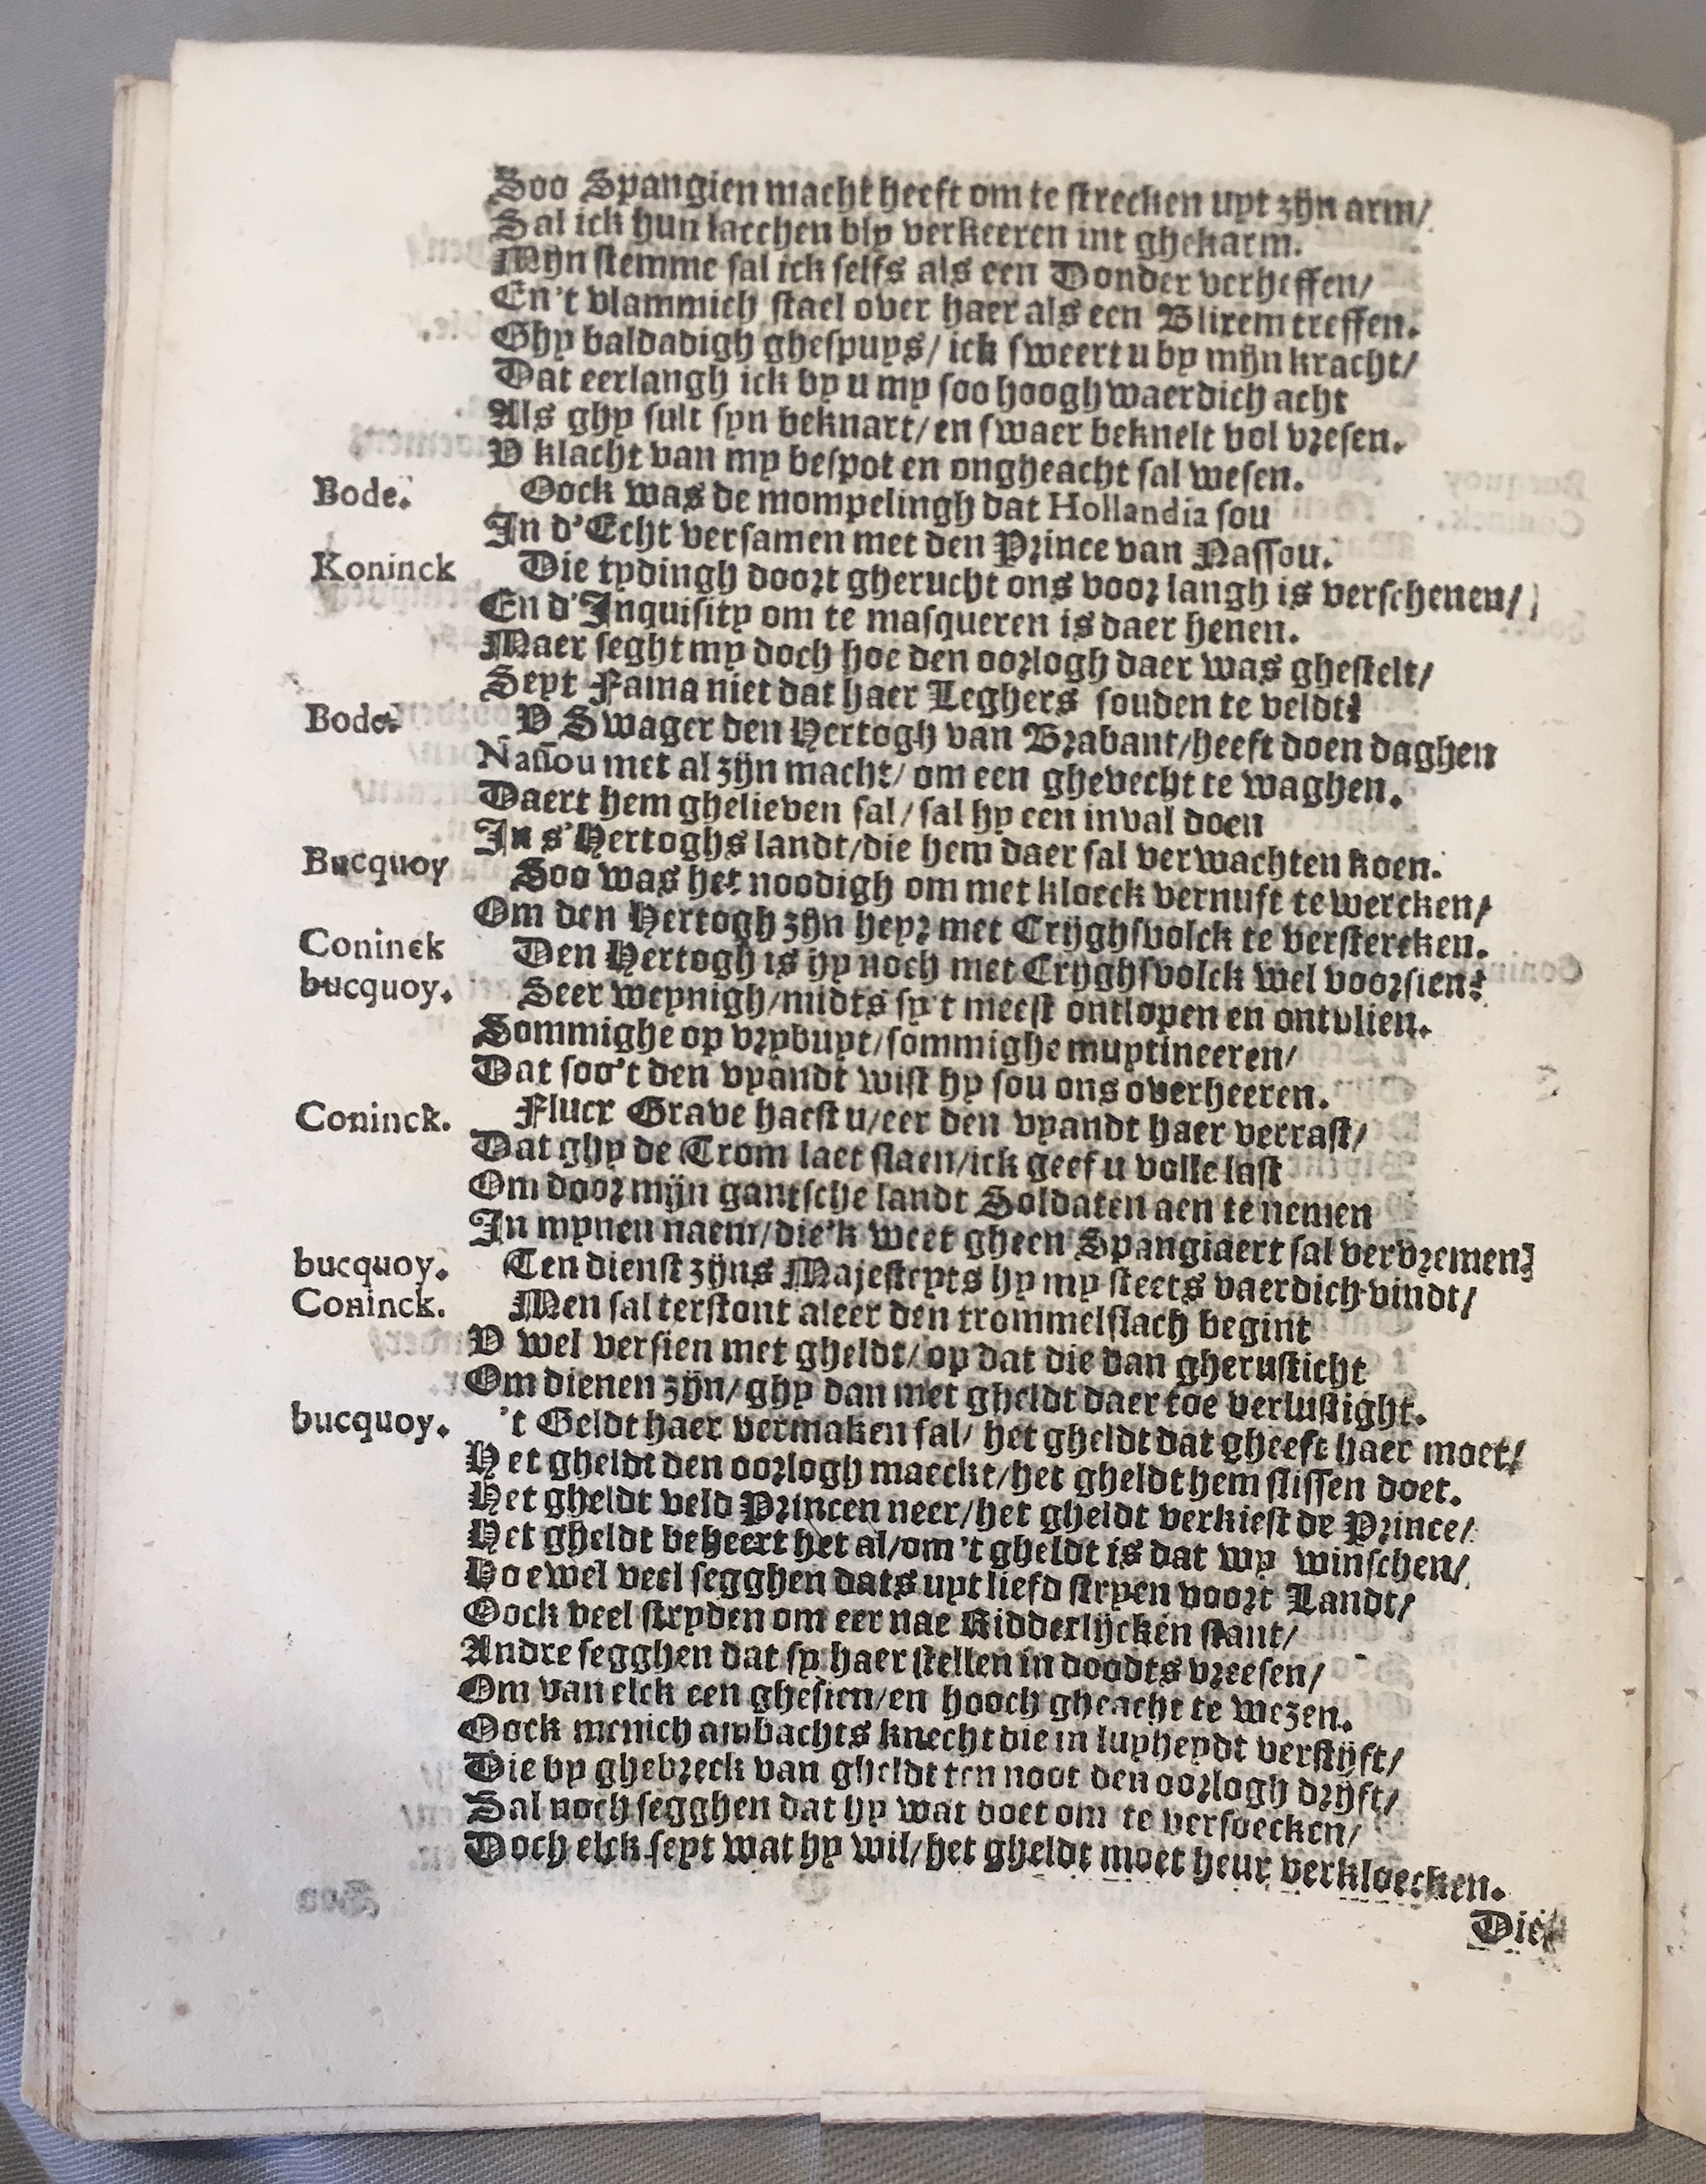 Soo Spangien macht heeft om te strecken uyt zijn arm/
Sal ick hun lacchen bly verkeeren int ghekarm.
Mijn stemme sal ick selfs als een Donder verheffen/
En't vlammich stael over haer als een Blixem treffen.
Ghy baldadigh ghespuys/ ick sweert u by mijn kracht/
Dat eerlangh ick by u my soo hoogh waerdich acht
Als ghy sult syn beknart/ en swaer beknelt vol vresen.
V klacht van my bespot en ongheacht sal wesen.
Bode. Oock was de mompelingh dat Hollandia sou
In d'Echt versamen met den Prince van Nassou.
Koninck Die tydingh doort gherucht ons voor langh is verschenen/
En d'Inquisity om te masqueren is daer henen.
Maer seght my doch hoe den oorlogh daer was ghestelt/
Seyt Fama niet dat haer Leghers souden te veldt?
Bode. V Swager den Hertogh van Brabant/heeft doen daghen
Nassou met al zijn macht/ om een ghevecht te waghen.
Daert hem ghelieven sal/ sal hy een inval doen
In s'Hertoghs landt/die hem daer sal verwachten koen.
Bucquoy Soo was het noodigh om met kloeck vernuft te wercken/
Om den Hertogh zijn heyr met Crijghsvolck te verstercken.
Coninck Den Hertogh is hy noch met Crijghsvolck wel voorsien?
bucquoy. Seer weynigh/midts sy't meest ontlopen en ontvlien.
Sommighe op vrybuyt/sommighe muytineeren/
Dat soo't den vyandt wist hy sou ons overheeren.
Coninck. Flucx Grave haest u/eer den vyandt haer verrast/
Dat ghy de Trom laet slaen/ick geef u volle last
Om door mijn gantsche landt Soldaten aen te nemen
In mynen naem/die'k weet gheen Spangiaert sal vervremen?
bucquoy. Ten dienst zijns Majesteyts hy my steets vaerdich vindt/
Coninck. Men sal terstont aleer den trommelslach begint
V wel versien met gheldt/ op dat die dan gherusticht
Om dienen zijn/ ghy dan met gheldt daer toe verlustight.
bucquoy. 't Geldt haer vermaken sal/ het gheldt dat gheeft haer moet/
Het gheldt den oorlogh maeckt/het gheldt hem slissen doet.
Het gheldt veld Princen neer/het gheldt verkiest de Prince/
Het gheldt beheert het al/om 't gheldt is dat wy winschen/
Hoewel veel segghen dats uyt liefd stryen voort Landt/
Oock veel stryden om eer nae Ridderlijcken stant/
Andre segghen dat sy haer stellen in doodts vreesen/
Om van elck een ghesien/en hooch gheacht te wezen.
Oock menich ambachts knecht die in luyheydt verstijft/
Die by ghebreck van gheldt ten noot den oorlogh drijft/
Sal noch segghen dat hy wat doet om te versoecken/
Doch elck seyt wat hy wil/het gheldt moet heur verkloecken.
Die